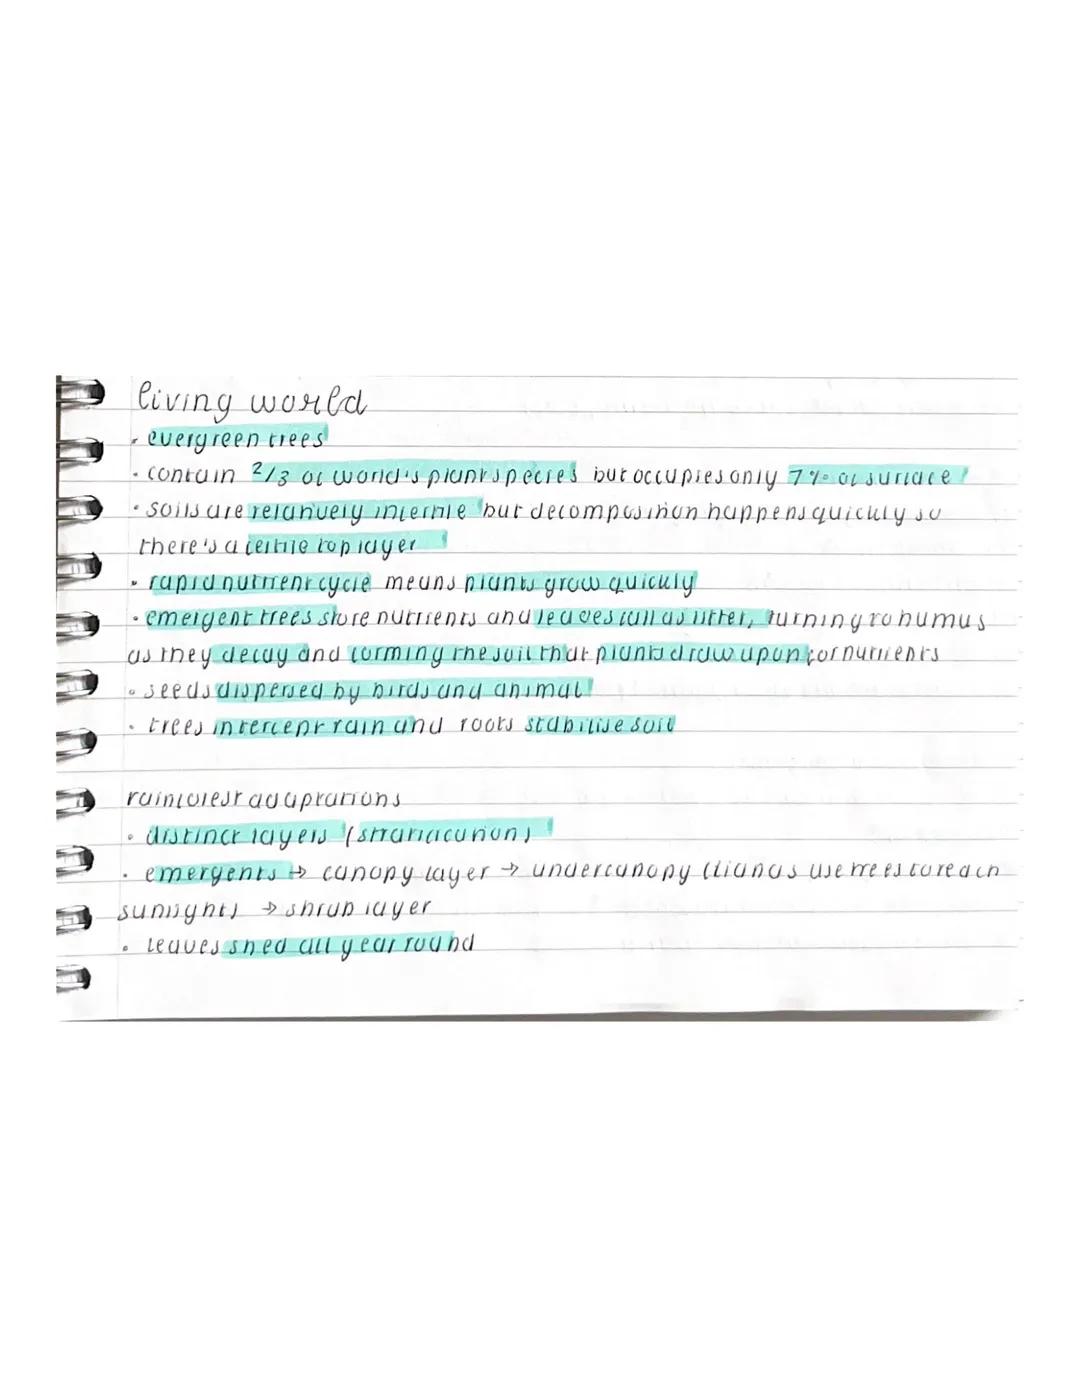 living world
• evergreen trees
• contain 2/3 of world's plant species but occupies only 7% of surface
• soils are relatively infertile but decomposition happens quickly so
there's a fertile top layer
• rapid nutrient cycle means plants grow quickly
• emergent trees store nutrients and leaves fall as litter, turning to humus
as they decay and forming the soil that plants draw upon for nutrients
• seeds dispersed by birds and animal
• trees intercept rain and roots stabilise soil
rainforest adaptations
• distinct layers (stratification)
• emergents → canopy layer → undercanopy (lianas use trees to reach
sunlight) → shrub layer
• leaves shed all year round